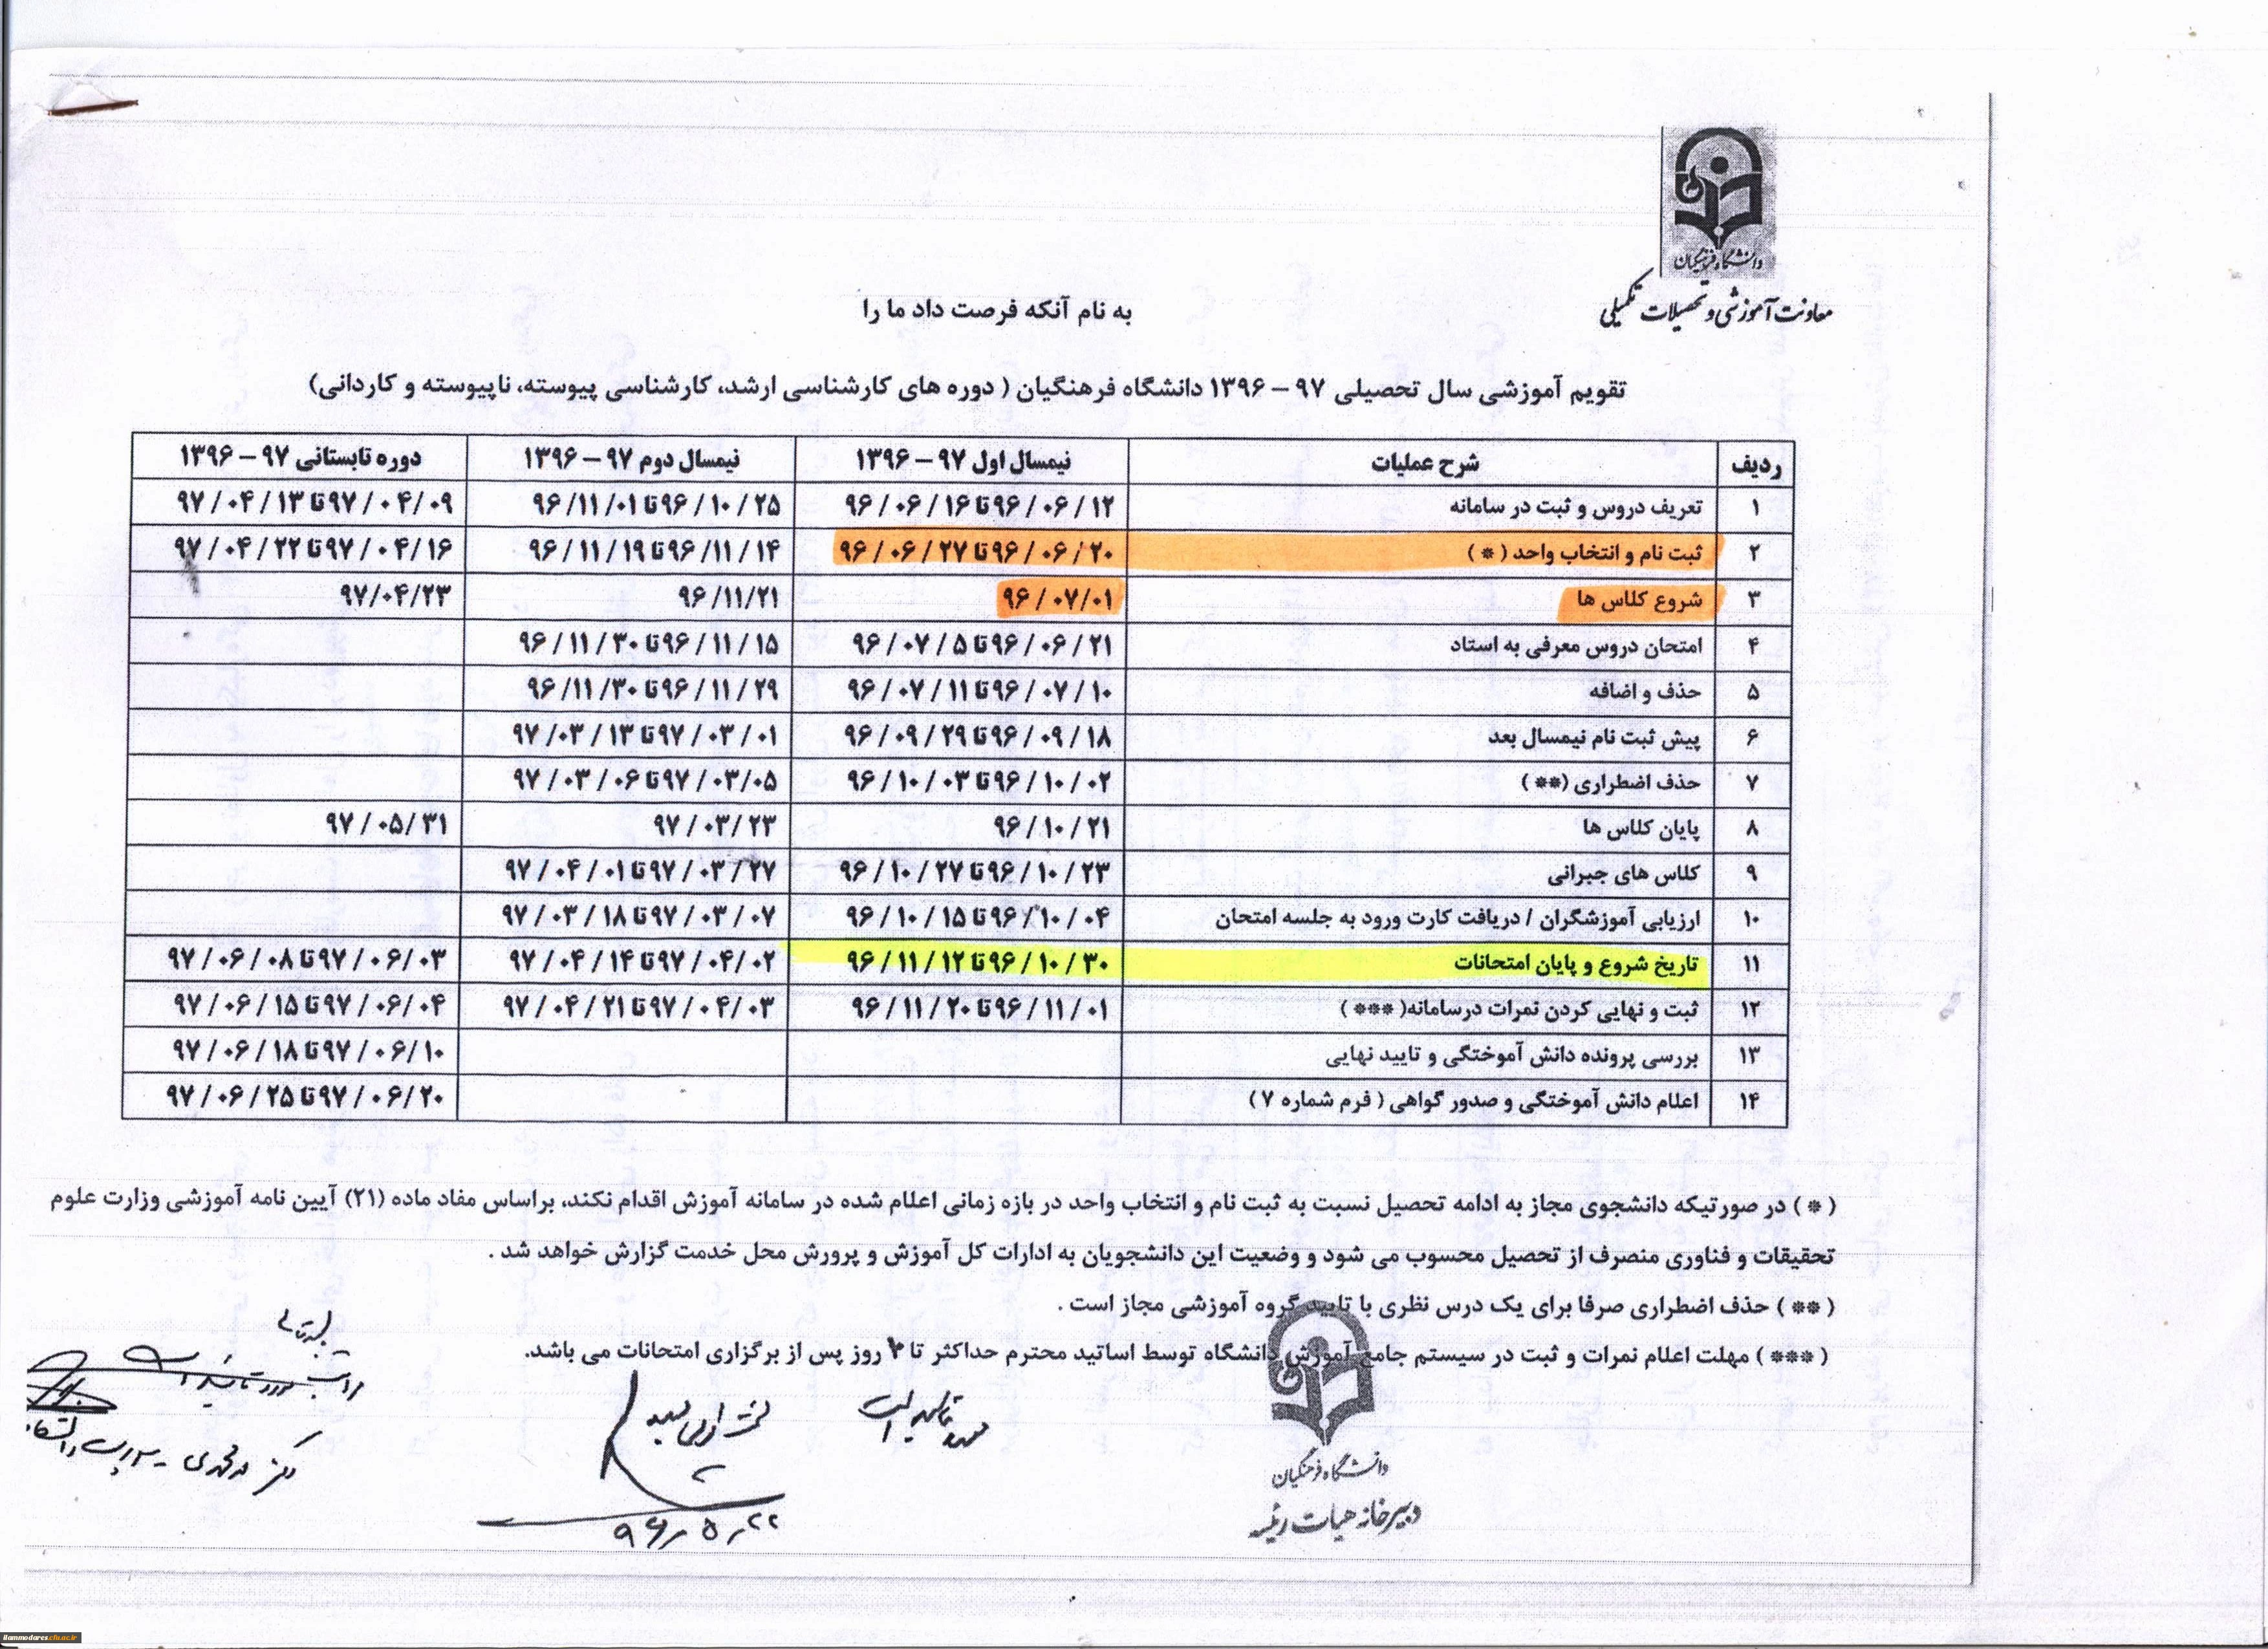 دانشگاه فرهنگیان
معاونت آموزشی و تحصیلات تکمیلی
به نام آنکه فرصت داد ما را
تقویم آموزشی سال تحصیلی ۹۷ – ۱۳۹۶ دانشگاه فرهنگیان ( دوره های کارشناسی ارشد، کارشناسی پیوسته، ناپیوسته و کاردانی)
ردیف شرح عملیات نیمسال اول ۹۷ – ۱۳۹۶ نیمسال دوم ۹۷ – ۱۳۹۶ دوره تابستانی ۹۷ – ۱۳۹۶
۱ تعریف دروس و ثبت در سامانه ۹۶/۰۶/۱۲ تا ۹۶/۰۶/۱۶ ۹۶/۱۰/۲۵ تا ۹۶/۱۱/۰۱ ۹۷/۰۴/۰۹ تا ۹۷/۰۴/۱۳
۲ ثبت نام و انتخاب واحد ( * ) ۹۶/۰۶/۲۰ تا ۹۶/۰۶/۲۷ ۹۶/۱۱/۱۴ تا ۹۶/۱۱/۱۹ ۹۷/۰۴/۱۶ تا ۹۷/۰۴/۲۲
۳ شروع کلاس ها ۹۶/۰۷/۰۱ ۹۶/۱۱/۲۱ ۹۷/۰۴/۲۳
۴ امتحان دروس معرفی به استاد ۹۶/۰۶/۲۱ تا ۹۶/۰۷/۵ ۹۶/۱۱/۱۵ تا ۹۶/۱۱/۳۰
۵ حذف و اضافه ۹۶/۰۷/۱۰ تا ۹۶/۰۷/۱۱ ۹۶/۱۱/۲۹ تا ۹۶/۱۱/۳۰
۶ پیش ثبت نام نیمسال بعد ۹۶/۰۹/۱۸ تا ۹۶/۰۹/۲۹ ۹۷/۰۳/۰۱ تا ۹۷/۰۳/۱۳
۷ حذف اضطراری (** ) ۹۶/۱۰/۰۲ تا ۹۶/۱۰/۰۳ ۹۷/۰۳/۰۵ تا ۹۷/۰۳/۰۶
۸ پایان کلاس ها ۹۶/۱۰/۲۱ ۹۷/۰۳/۲۳ ۹۷/۰۵/۳۱
۹ کلاس های جبرانی ۹۶/۱۰/۲۳ تا ۹۶/۱۰/۲۷ ۹۷/۰۳/۲۷ تا ۹۷/۰۴/۰۱
۱۰ ارزیابی آموزشگران / دریافت کارت ورود به جلسه امتحان ۹۶/۱۰/۰۴ تا ۹۶/۱۰/۱۵ ۹۷/۰۳/۰۷ تا ۹۷/۰۳/۱۸
۱۱ تاریخ شروع و پایان امتحانات ۹۶/۱۰/۳۰ تا ۹۶/۱۱/۱۲ ۹۷/۰۴/۰۲ تا ۹۷/۰۴/۱۴ ۹۷/۰۶/۰۳ تا ۹۷/۰۶/۰۸
۱۲ ثبت و نهایی کردن نمرات درسامانه( *** ) ۹۶/۱۱/۰۱ تا ۹۶/۱۱/۲۰ ۹۷/۰۴/۰۳ تا ۹۷/۰۴/۲۱ ۹۷/۰۶/۰۴ تا ۹۷/۰۶/۱۵
۱۳ بررسی پرونده دانش آموختگی و تایید نهایی ۹۷/۰۶/۱۰ تا ۹۷/۰۶/۱۸
۱۴ اعلام دانش آموختگی و صدور گواهی ( فرم شماره ۷ ) ۹۷/۰۶/۲۰ تا ۹۷/۰۶/۲۵
( * ) در صورتیکه دانشجوی مجاز به ادامه تحصیل نسبت به ثبت نام و انتخاب واحد در بازه زمانی اعلام شده در سامانه آموزش اقدام نکند، براساس مفاد ماده (۲۱) آیین نامه آموزشی وزارت علوم
تحقیقات و فناوری منصرف از تحصیل محسوب می شود و وضعیت این دانشجویان به ادارات کل آموزش و پرورش محل خدمت گزارش خواهد شد .
( ** ) حذف اضطراری صرفا برای یک درس نظری با تایید گروه آموزشی مجاز است .
( *** ) مهلت اعلام نمرات و ثبت در سیستم جامع آموزش دانشگاه توسط اساتید محترم حداکثر تا روز پس از برگزاری امتحانات می باشد.
مورد تایید است
۹۶/۵/۲۲
دانشگاه فرهنگیان
دبیرخانه هیات رئیسه
ilammodares.cfu.ac.ir